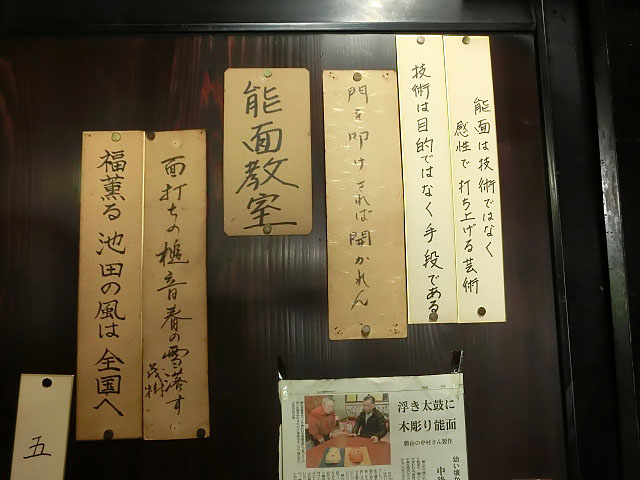 能面は技術ではなく
感性で打ち上げる芸術
技術は目的ではなく手段である
門を叩けされば開かれん
能面教室
面打ちの槌音春の雪落す
茂樹
福薫る池田の風は全国へ
五
浮き太鼓に
木彫り能面
勝山の中村さん製作
幼い頃か